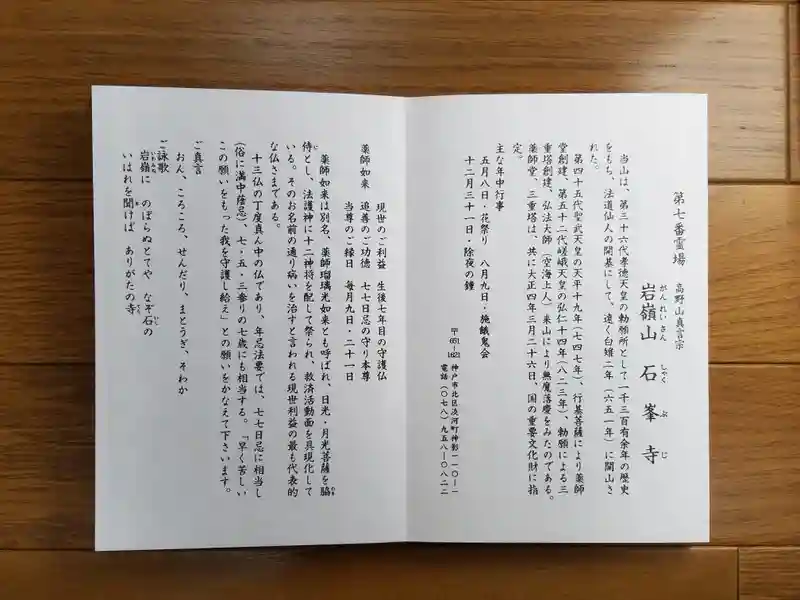 第七番霊場
高野山真言宗
岩嶺山 石峯寺
がんれいさん しゃくぶじ
当山は、第三十六代孝徳天皇の勅願所として一千三百有余年の歴史
をもち、法道仙人の開基にして、遠く白雉二年（六五一年）に開山さ
れた。
第四十五代聖武天皇の天平十九年（七四七年）、行基菩薩により薬師
堂創建、第五十二代嵯峨天皇の弘仁十四年（八二三年）、勅願による三
重塔創建、弘法大師（空海上人）来山により無魔落慶をみたのである。
薬師堂、三重塔は、共に大正四年三月二十六日、国の重要文化財に指
定。
主な年中行事
五月八日・花祭り 八月九日・施餓鬼会
十二月三十一日・除夜の鐘
〒651-1621 神戸市北区淡河町神影一一〇－一
電話（〇七八）九五八－〇八二二
現世のご利益 生後七年目の守護仏
薬師如来 追善のご功徳 七七日忌の守り本尊
当尊のご縁日 毎月九日・二十一日
薬師如来は別名、薬師瑠璃光如来とも呼ばれ、日光・月光菩薩を脇
わき
侍とし、法護神に十二神将を配して祭られ、救済活動面を具現化して
じ
いる。そのお名前の通り病いを治すと言われる現世利益の最も代表的
な仏さまである。
十三仏の丁度真ん中の仏であり、年忌法要では、七七日忌に相当し
（俗に満中蔭忌）、七・五・三参りの七歳にも相当する。「早く苦しい
この願いをもった我を守護し給え」との願いをかなえて下さいます。
ご真言
おん、ころころ、せんだり、まとうぎ、そわか
ご詠歌
岩嶺に のぼらぬとてや なぞ石の
いわみね
いはれを聞けば ありがたの寺